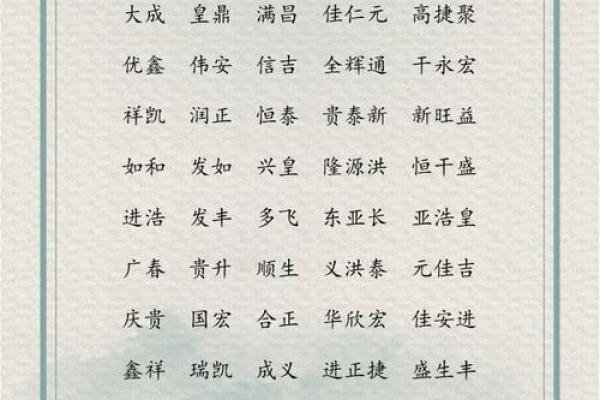 大成 皇鼎 满昌 佳仁元 高捷聚
优鑫 伟安 信吉 全辉通 干永宏
祥凯 润正 恒泰 贵泰新 新旺益
如和 发如 兴皇 隆源洪 恒干盛
进浩 发丰 多飞 东亚长 亚浩皇
广春 贵升 顺生 义洪泰 元佳吉
庆贵 国宏 合正 华欣宏 佳安进
鑫祥 瑞凯 成义 进正捷 盛生丰